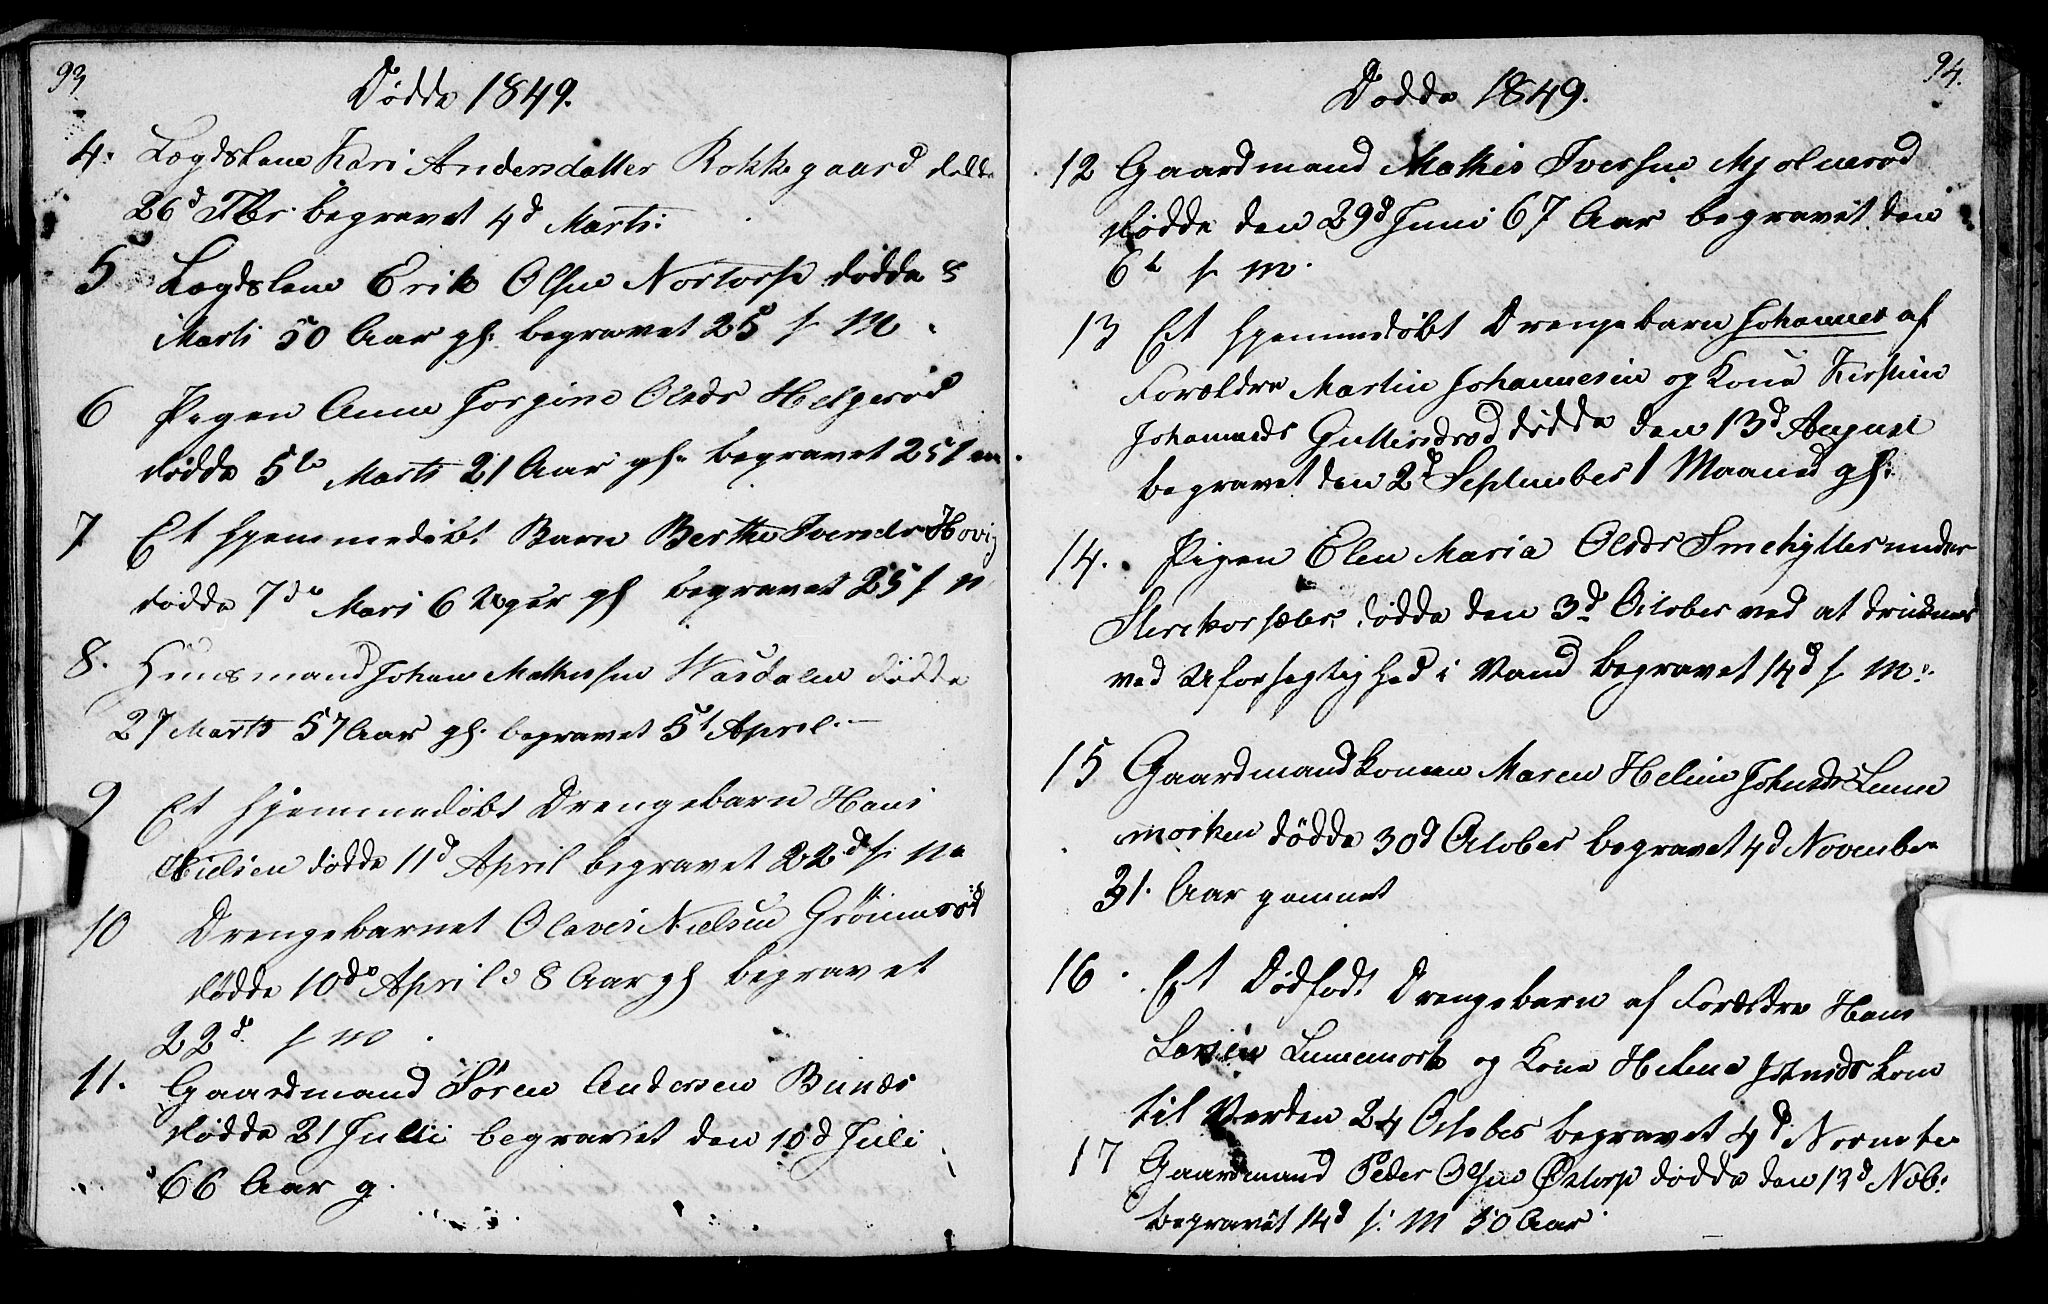 93.
Dødde 1849.
4. Lægdslem Kari Andersdatter Rokkegaard dødde
26d Fbr. begravet 4d Marts.
5 Lægdslem Erik Olsen Nortorp dødde 8
Marts 50 Aar gl. begravet 25 s. M.
6 Pigen Anne Jorgine Olsdr Helgerød
dødde 5te Marts 21 Aar gl. begravet 25 s m.
7 Et hjemmedøbt Barn Berthe Iversdr Hovig
dødde 7de Mars 6 Uger gl begravet 25 s. m
8. Huusmand Johan Mathissen Wasdalen dødde
27 Marts 57 Aar gl. begravet 5t April.
9 Et hjemmedøbt Drengebarn Hans
Nielsen dødde 11d April begravet 22d s. m
10 Drengebarnet Olaves Nielsen Grønnerød
dødde 10de April 8 Aar gl begravet
22d. s m.
11. Gaardmand Søren Andersen Bunæs
dødde 21 Juli begravet den 10d Juli
66 Aar g.
94.
Dødde 1849.
12 Gaardmand Mathis Iversen Mjølnerød
dødde den 29d Juni 67 Aar begravet den
6t s. m.
13 Et hjemmedøbt Drengebarn Johannes af
Forældre Martin Johannesen og Kone Kirstine
Johannesdr Gulliksrød dødde den 13d August
begravet den 2d September 1 Maaned gl.
14. Pigen Elen Maria Olsdr Smehytten under
dødde den 3d October ved at drukne
ved Uforsegtighed i Vand begravet 14d s. M.
15 Gaardmandkonen Maren Helene Johnsdr Lunne
morken dødde 30d October begravet 4d November
31. Aar gammel
16. Et Dødfødt Drengebarn af Forældre Hans
Larsen Lunnemork og Kone Helene Johnsdr kom
til Verden 24 October begravet 4d November
17 Gaardmand Peder Olsen Østorp dødde den 12d Nob.
begravet 14d s. M 50 Aar.